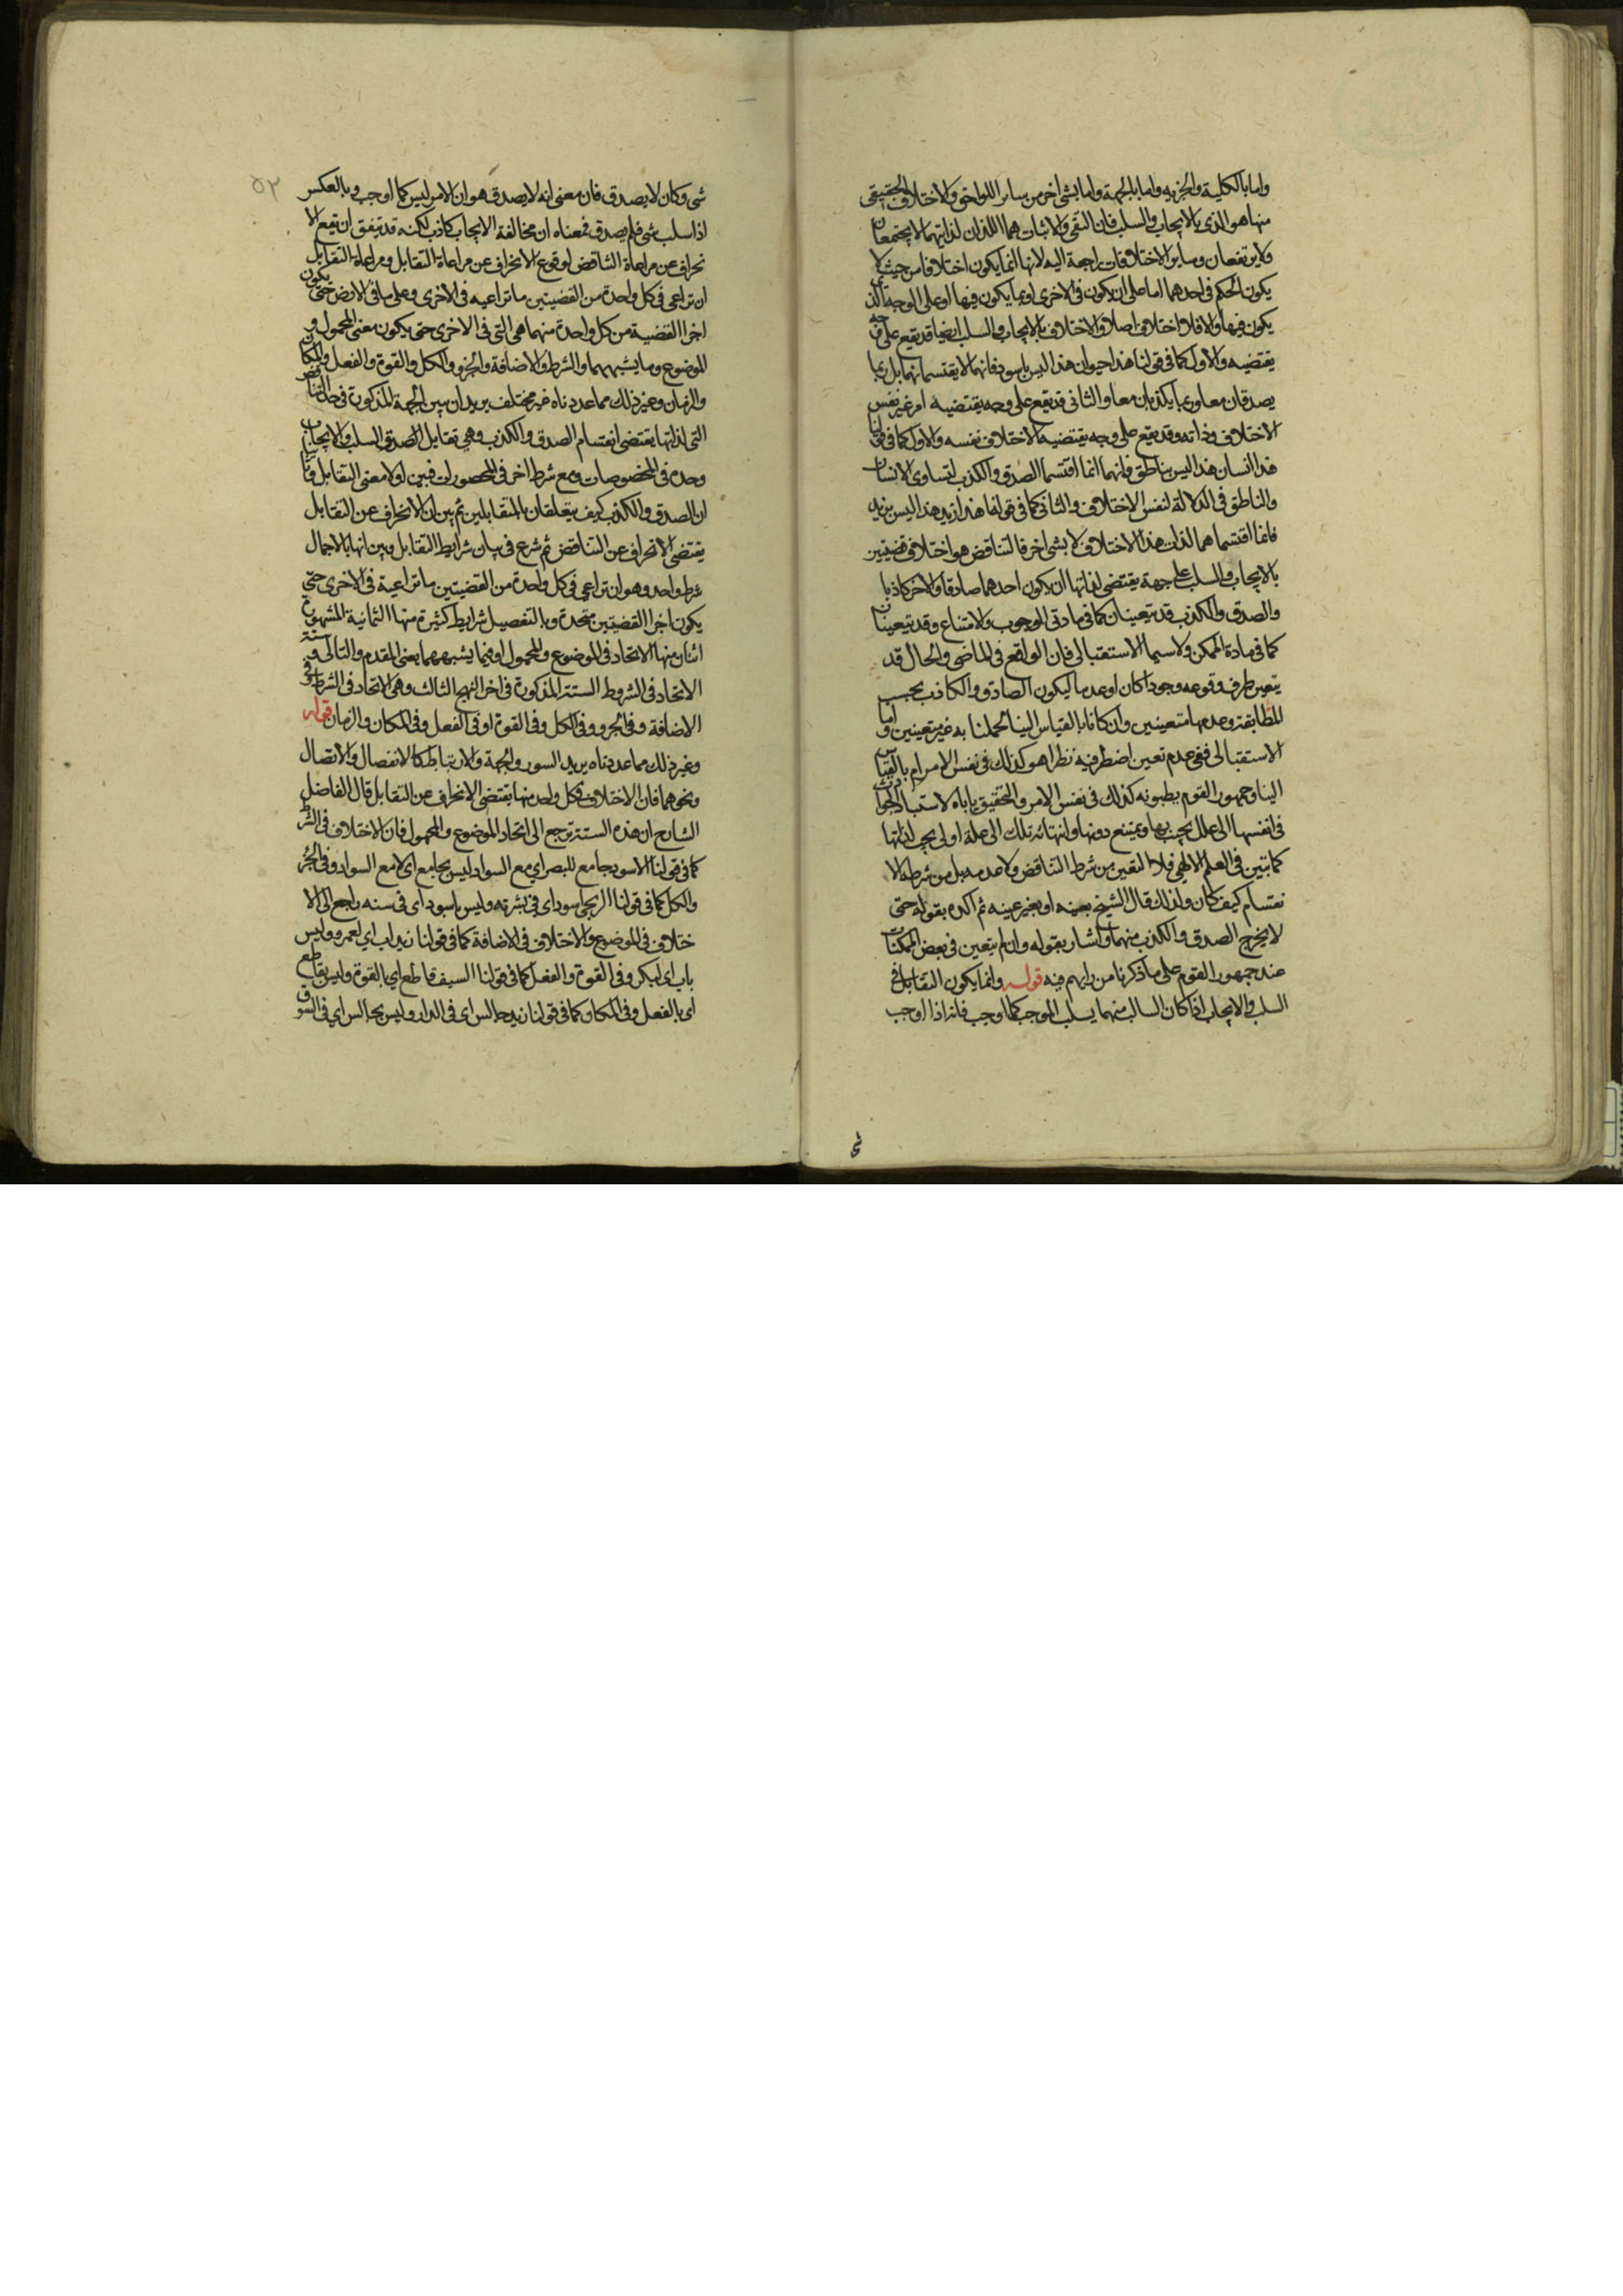 واما بالكلية والجزيه واما بالجهة واما بشئ اخر من ساير اللواحق والاختلاف الحقيقى
منها هو الذى بالايجاب والسلب فان النفى والاثبات هما اللذان لذاتيهما لا يجتمعان
ولا يرتفعان وساير الاختلافات راجعة اليه لانها انما يكون اختلافا من حيث لا
يكون الحكم فى احدهما اما على ان يكون فى الاخرى او بما يكون فيها او على الوجه الذى
يكون فيها والا فلا اختلاف اصلا والاختلاف بالايجاب والسلب ايضا قد يقع على وجه
يقتضيه والاول كما فى قولنا هذا حيوان هذا ليس باسود فانهما لا يقتسمانهما بل ربما
يصدقان معا وربما يكذبان معا والثانى قد يقع على وجه يقتضيه امر غير نفس
الاختلاف وذاته وقد يقع على وجه يقتضيه الاختلاف نفسه والاول كما فى قولنا
هذا انسان هذا ليس بناطق فانهما انما اقتسما الصدق والكذب لتساوى الانسان
والناطق فى الدلالة لنفس الاختلاف والثانى كما فى قولنا هذا زيد هذا ليس بزيد
فانما اقتسماهما لذات هذا الاختلاف لا بشئ اخر فالتناقض هو اختلاف قضيتين
بالايجاب والسلب على جهة يقتضى لذاتها ان يكون احدهما صادقا والاخر كاذبا
والصدق والكذب قد يتعينان كما فى مادتى الوجوب والامتناع وقد لا يتعينان
كما فى مادة الممكن ولا سيما الاستقبالى فان الواقع فى الماضى والحال قد
يتعين طرف وقوعه وجودا كان او عدما ليكون الصادق والكاذب بحسب
المطابقة وعدمها متعينين وان كانا بالقياس الينا لجهلنا به غير متعينين واما
الاستقبالى ففى عدم تعين احد طرفيه نظر اهو كذلك فى نفس الامر ام بالقياس
الينا وجمهور القوم يظنونه كذلك فى نفس الامر والتحقيق ياباه لاستناد الحوادث
فى انفسها الى علل يجب بها ويمتنع دونها وانتهاء تلك الى علة اولى يجب لذاتها
كما تبين فى العلم الالهى فلا التعين من شرط التناقض ولا عدمه بل من شرطه الا
نقسام كيف كان ولذلك قال الشيخ بعينه او بغير عينه ثم اكده بقوله حتى
لا يخرج الصدق والكذب منهما واشار بقوله وان لم يتعين فى بعض الممكنات
عند جمهور القوم على ما ذكرنا من رايهم فيه قوله وانما يكون التقابل فى
السلب والايجاب اذا كان السالب منهما يسلب الموجب كما اوجب فانه اذا اوجب
فى
٥٢
شى وكان لا يصدق فان معنى انه لا يصدق هو ان الامر ليس كما اوجب وبالعكس
اذا سلب شى فلم يصدق فمعناه ان مخالفة الايجاب كاذب لكنه قد يتفق ان يقع الا
نحراف عن مراعاة التناقض لوقوع الانحراف عن مراعاة التقابل ومراعاة التقابل
ان تراعى فى كل واحدة من القضيتين ما تراعيه فى الاخرى وعلى ما فى الارض حتى يكون
اجزا القضية من كل واحدة منهما هى التى فى الاخرى حتى يكون معنى المحمول و
الموضوع وما يشبههما والشرط والاضافة والجزو والكل والقوة والفعل والمكان
والزمان وغير ذلك مما عددناه غير مختلف يريد ان يبين الجهة المذكورة فى حد التناقض
التى لذاتها يقتضى انقسام الصدق والكذب وهى تقابل الصدق السلب والايجاب
وحده فى المخصوصات ومع شرط اخر فى المحصورات فبين اولا معنى التقابل وبين
ان الصدق والكذب كيف يتعلقان بالمتقابلين ثم بين ان الانحراف عن التقابل
يقتضى الانحراف عن التناقض ثم شرع فى بيان شرايط التقابل وبين انها بالاجمال
شرط واحد وهو ان تراعى فى كل واحدة من القضيتين ما تراعية فى الاخرى حتى
يكون اجزا القضيتين متحدة وبالتفصيل شرايط كثيرة منها الثمانية المشهورة
اثنان منها الاتحاد فى الموضوع والمحمول او فيما يشبههما يعنى المقدم والتالى وستة
الاتحاد فى الشروط الستة المذكورة فى اخر النهج الثالث وهى الاتحاد فى الشرط وفى
الاضافة وفى الجزو وفى الكل وفى القوة او فى الفعل وفى المكان والزمان قوله
وغير ذلك مما عددناه يريد السور والجهة والارتباط كالانفصال والاتصال
ونحوهما فان الاختلاف بكل واحد منها يقتضى الانحراف عن التقابل قال الفاضل
الشارح ان هذه الستة ترجع الى اتحاد الموضوع والمحمول فان الاختلاف فى الشرط
كما فى قولنا الاسود جامع للبصر اى مع السواد ليس بجامع اى لا مع السواد وفى الجزء
والكل كما فى قولنا الزنجى اسود اى فى بشرته وليس باسود اى فى سنه راجع الى الا
ختلاف فى الموضوع والاختلاف فى الاضافة كما فى قولنا زيد اب اى لعمرو وليس
باب اى لبكر وفى القوة والفعل كما فى قولنا السيف قاطع اى بالقوة وليس بقاطع
اى بالفعل وفى المكان كما فى قولنا زيد جالس اى فى الدار وليس بجالس اى فى السوق